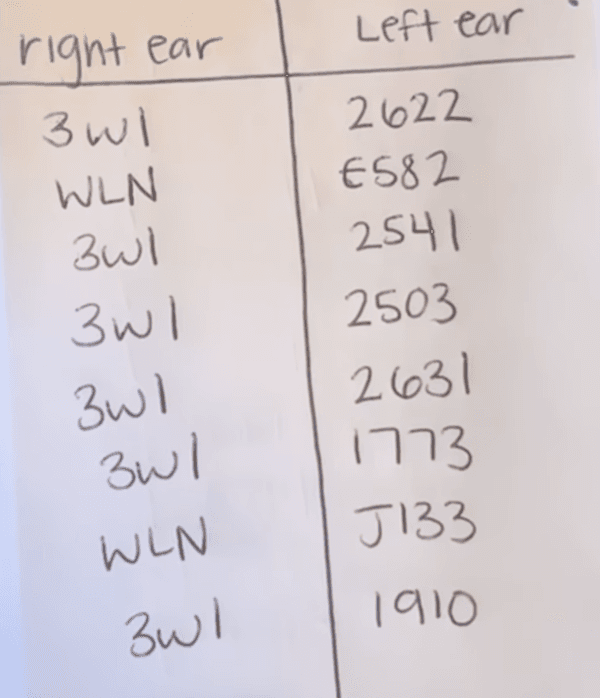 right ear Left ear
3w1 2622
WLN E582
3w1 2541
3w1 2503
3w1 2631
3w1 1773
WLN J133
3w1 1910